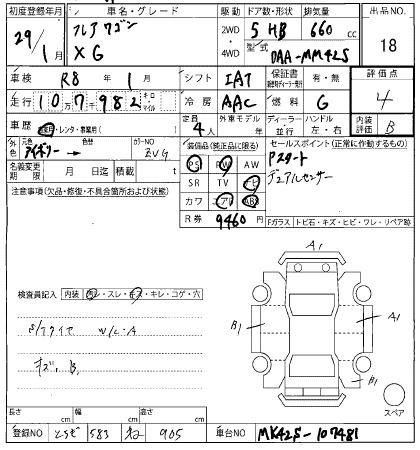 初度登録年月 車名・グレード 駆動 ドア数・形状 排気量 出品NO.
29年 フレアワゴン 2WD 5HB 660cc 18
1月 XG 4WD 型式 DAA-MM42S
車検 R8年1月 シフト IAT 保証書 有・無 評価点
走行 107,982 キロ マイル 冷房 AAC 燃料 G 4
車歴 自家用・レンタ・事業用( ) 定員 4人 外車モデル 年 ディーラー・並行 ハンドル 左・右 内装評価 B
外色 元色 色替 カラーNO ZVG
名義変更期限 月 日迄 積載 t
装備品(純正品に限る) セールスポイント(正常に作動するもの)
PS PW AW Pスタート
SR TV ナビ デュアルセンサー
カワ エアB ABS
R券 9460円 Fガラス トビ石・キズ・ヒビ・ワレ・リペア跡
注意事項(欠品・修復・不具合箇所および状態)
A1
B1 A1
B1
検査員記入 内装 ヨゴレ・スレ・キズ・キレ・コゲ・穴
W/L・A
キズ、B、
スペア
長さ cm 幅 cm 高さ cm
登録NO とちぎ 583 905 車台NO MK42S-107481